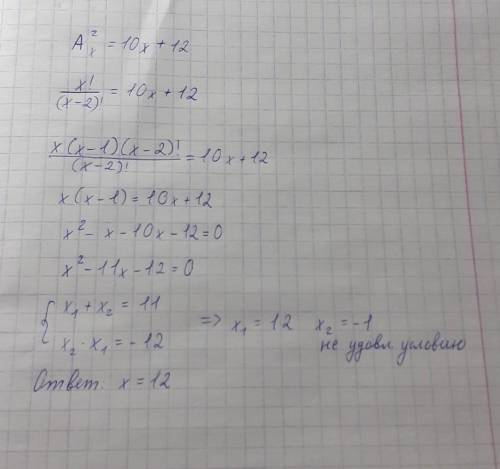 A²ₓ = 10x + 12
x! / (x-2)! = 10x + 12
x(x-1)(x-2)! / (x-2)! = 10x + 12
x(x-1) = 10x + 12
x² - x - 10x - 12 = 0
x² - 11x - 12 = 0
{ x₁ + x₂ = 11
x₂ · x₁ = -12 => x₁ = 12 x₂ = -1
не удовл. условию
Ответ: x = 12